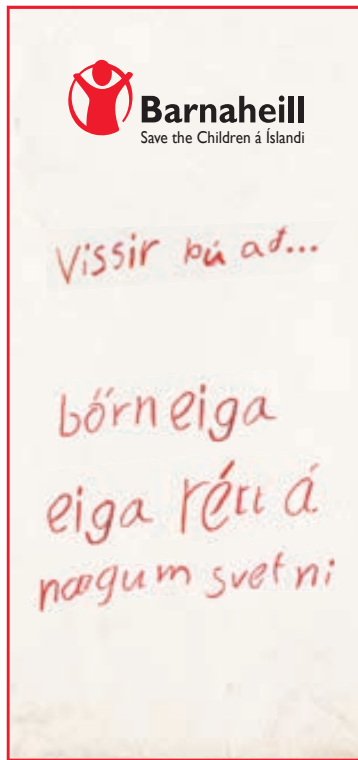 Barnaheill
Save the Children á Íslandi
Vissir þú að...
börn eiga
eiga rétt á
nægum svefni